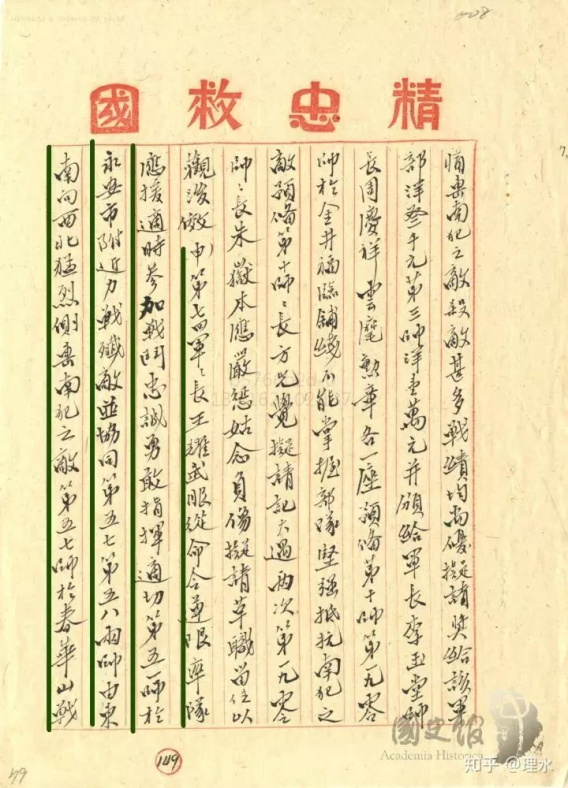 精忠救國
擊南犯之敵殺敵甚多戰績均尚優擬請獎給該軍
部洋參千元第三師洋壹萬元并頒給軍長李玉堂師
長周慶祥雲麾勳章各一座預備第十師第一九零
師於金井福臨鋪綫不能掌握部隊堅强抵抗南犯之
敵預備第十師々長方先覺擬請記大過兩次第一九零
師々長朱嶽本應嚴懲姑念負傷擬請革職留任以
觀後效申)第七四軍々長王耀武服從命令遵限率隊
應援適時參加戰鬥忠誠勇敢指揮適切第五一師於
永安市附近力戰殲敵並協同第五七第五八兩師由東
南向西北猛烈側擊南犯之敵第五七師於春華山戰
149
國史館
Academia Historica
知乎 @理水